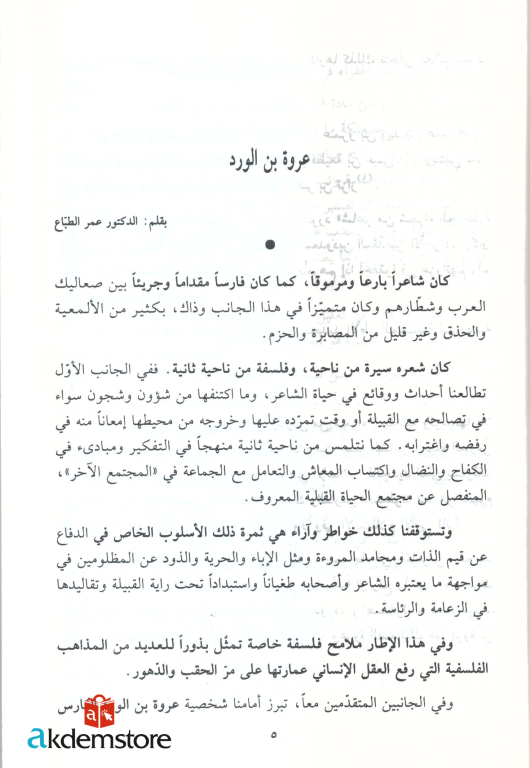 عروة بن الورد
بقلم: الدكتور عمر الطبّاع
كان شاعراً بارعاً ومرموقاً، كما كان فارساً مقداماً وجريئاً بين صعاليك
العرب وشطّارهم وكان متميّزاً في هذا الجانب وذاك، بكثير من الألمعية
والحذق وغير قليل من المصابرة والحزم.
كان شعره سيرة من ناحية، وفلسفة من ناحية ثانية. ففي الجانب الأوّل
تطالعنا أحداث ووقائع في حياة الشاعر، وما اكتنفها من شؤون وشجون سواء
في تصالحه مع القبيلة أو وقت تمرّده عليها وخروجه من محيطها إمعاناً منه في
رفضه واغترابه. كما نتلمس من ناحية ثانية منهجاً في التفكير ومبادىء في
الكفاح والنضال واكتساب المعاش والتعامل مع الجماعة في «المجتمع الآخر»،
المنفصل عن مجتمع الحياة القبلية المعروف.
وتستوقفنا كذلك خواطر وآراء هي ثمرة ذلك الأسلوب الخاص في الدفاع
عن قيم الذات ومحامد المروءة ومثل الإباء والحرية والذود عن المظلومين في
مواجهة ما يعتبره الشاعر وأصحابه طغياناً واستبداداً تحت راية القبيلة وتقاليدها
في الزعامة والرئاسة.
وفي هذا الإطار ملامح فلسفة خاصة تمثّل بذوراً للعديد من المذاهب
الفلسفية التي رفع العقل الإنساني عمارتها على مرّ الحقب والدّهور.
وفي الجانبين المتقدّمين معاً، تبرز أمامنا شخصية عروة بن
٥
akdemstore